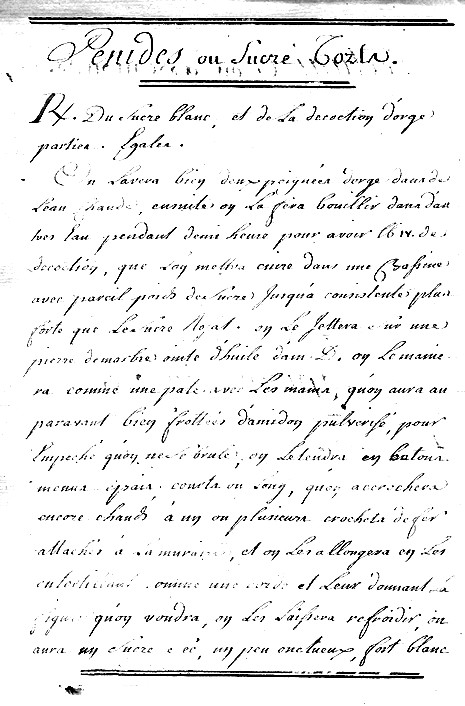 Penides ou Sucre Tozts.
R/. Du Sucre blanc, et de La decoction d'orge
parties. Egales.
On Lavera bien deux poignées d'orge dans de
L'eau chaude, ensuite on La fera bouillir dans d'au
tres Eau pendant demi heure pour avoir lb IV. de
decoction, que L'on mettra cuire dans une Bassine
avec pareil poids de Sucre Jusqu'a consistence plus
forte que Le Sucre Rozat. on Le Jettera sur une
pierre de marbre ointe d'huile d'am. D. on Le manie
ra comme une pate avec Les mains, qu'on aura au
paravant bien frottées d'amidon pulverisé, pour
Empeché qu'on ne se brule, on L'etendra en batons
menus épais courts ou Long, qu'on accrochera
encore chauds à un ou plusieurs crochets de fer
attachés à La muraille, et on Les allongera en Les
comme une corde et Leur donnant La
figure qu'on voudra, on Les Laissera refroidir, on
aura un Sucre un peu onctueux, fort blanc